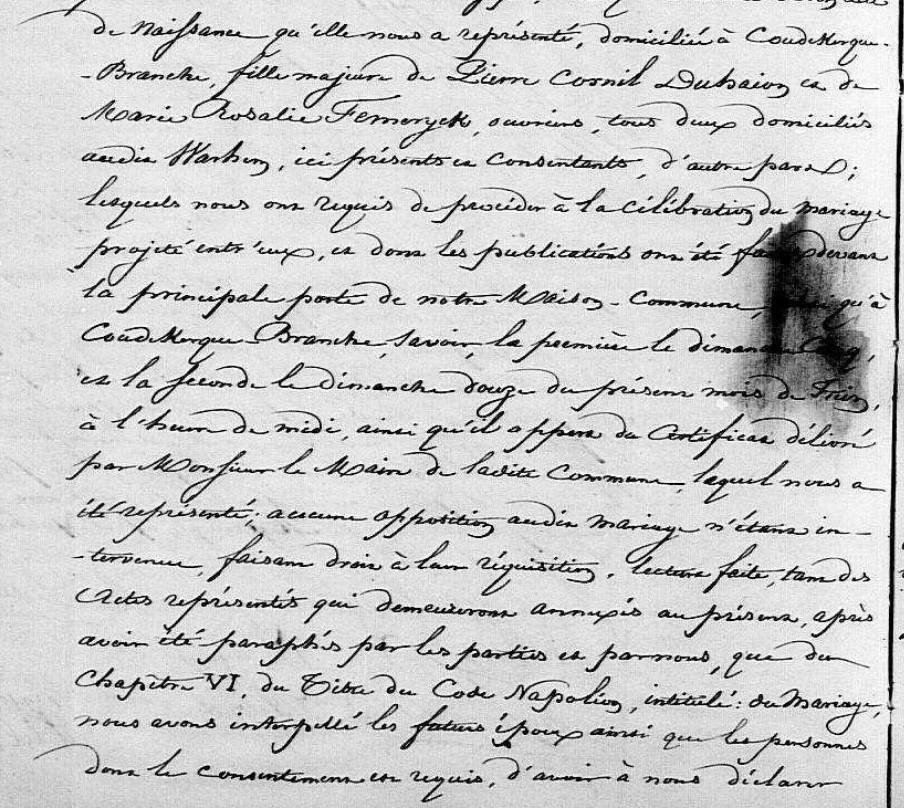 de Naissance qu'elle nous a représenté, domiciliée à Coudekerque-
-Branche, fille majeure de Pierre Cornil Duhaion et de
Marie Rosalie Femeryck, ouvriers, tous deux domiciliés
audit Warhem, ici présents et Consentants, d'autre part;
lesquels nous ont requis de procéder à la célébration du mariage
projeté entr'eux, et dont les publications ont été devant
la principale porte de notre Maison-Commune, qu'à
Coudekerque-Branche, savoir, la première le dimanche Cinq,
et la seconde le dimanche douze du présent mois de Juin,
à l'heure de midi, ainsi qu'il appert du Certificat délivré
par Monsieur le Maire de ladite Commune, laquel nous a
été représenté; aucune opposition audit mariage n'étant in-
-tervenue, faisant droit à leur réquisition, lecture faite, tant des
Actes représentés qui demeureront annexés au présent, après
avoir été paraphés par les parties et par nous, que du
Chapitre VI, du Titre du Code Napoléon, intitulé: du Mariage,
nous avons interpellé les futurs époux ainsi que les personnes
dont le consentement est requis, d'avoir à nous déclarer